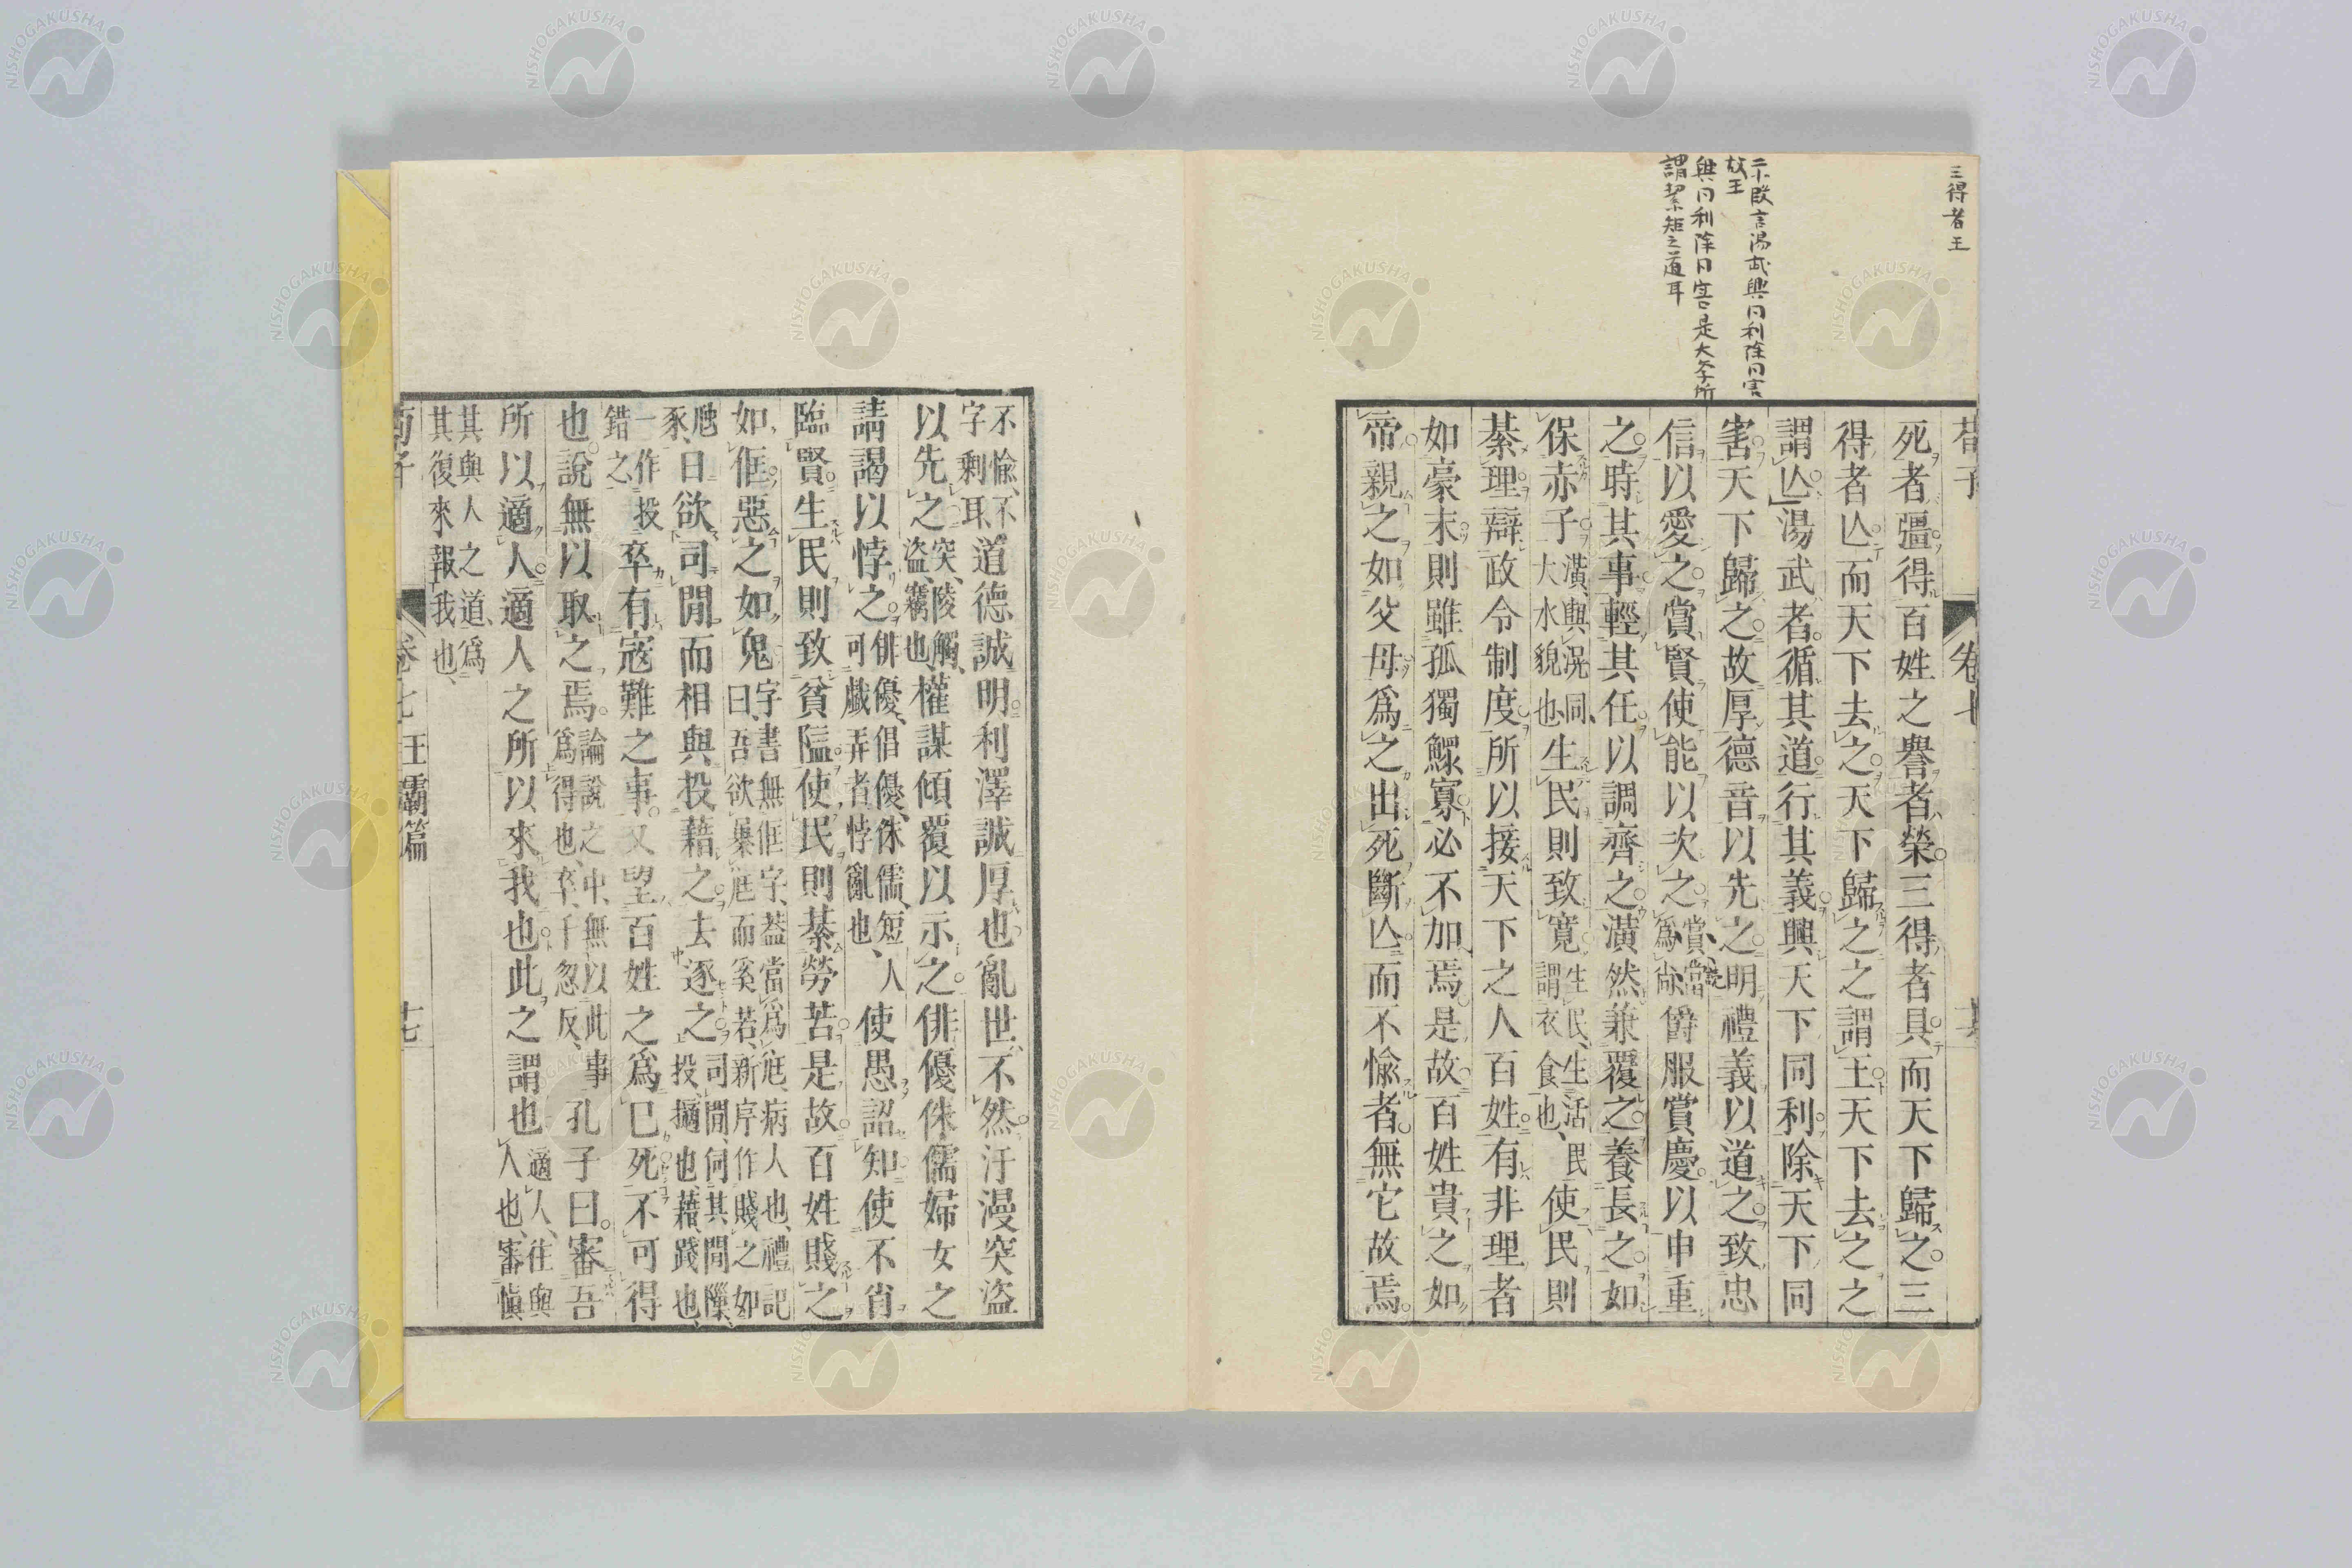 三得者王
二下段言湯武興同利除同害
故王
與同利除同害是大學所
謂絜矩之道耳
荀子 卷七
死者彊得百姓之譽者榮三得者具而天下歸之三
得者亾而天下去之天下歸之之謂王天下去之之
謂亾湯武者循其道行其義興天下同利除天下同
害天下歸之故厚德音以先之明禮義以道之致忠
信以愛之賞賢使能以次之賞當爲尚爵服賞慶以申重
之時其事輕其任以調齊之潢然兼覆之養長之如
保赤子潢與滉同大水貌也生民則致寬生民生活民謂衣食也使民則
綦理辯政令制度所以接天下之人百姓有非理者
如豪末則雖孤獨鰥寡必不加焉是故百姓貴之如
帝親之如父母爲之出死斷亾而不愉者無它故焉
不愉不字剩耳道德誠明利澤誠厚也亂世不然汙漫突盜
以先之突陵觸盜竊也權謀傾覆以示之俳優侏儒婦女之
請謁以悖之俳優倡優侏儒短人可戲弄者悖亂也使愚詔知使不肖
臨賢生民則致貧隘使民則綦勞苦是故百姓賤之
如𠊧惡之如鬼字書無𠊧字葢當爲尫病人也禮記曰吾欲㬥尫而奚若新序作賤之如
虺豕日欲司閒而相與投藉之去逐之司閒伺其閒隟投擿也藉踐也
一作投錯之卒有寇難之事又望百姓之爲已死不可得
也說無以取之焉論說之中無以此事爲得也卒千忽反孔子曰審吾
所以適人適人之所以來我也此之謂也適人往與人也審慎
其與人之道爲其復來報我也
荀子 卷七王霸篇 十七